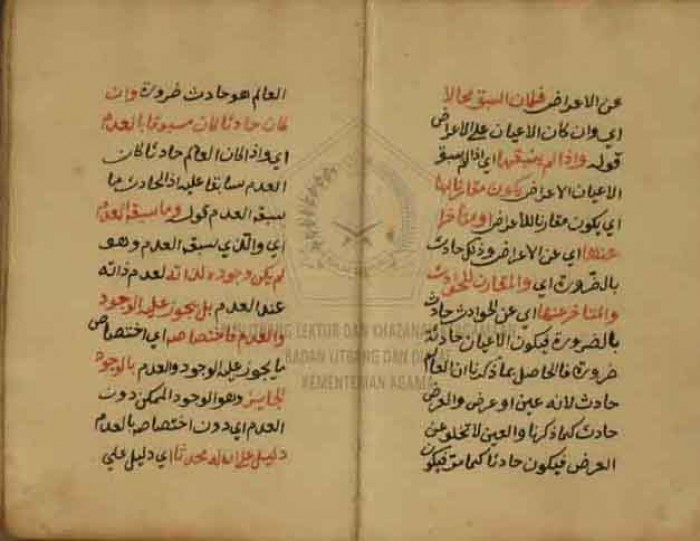 عن الاعراض فكان السبق محالا
اي وان كان الاعيان على الاعراض
قوله واذا لم يسبقها اي اذا لم يسبق
الاعيان الاعراض يكون مقارنا لها
اي يكون مقارنا للاعراض او متأخرا
عنها اي عن الاعراض وذلك حادث
بالضرورة اي والمقارن للحوادث
والمتأخر عنها اي عن الحوادث حادث
بالضرورة فيكون الاعيان حادثة
ضرورة فالحاصل بما ذكرنا ان العالم
حادث لانه عين او عرض والعرض
حادث كما ذكرنا والعين لا تخلو عن
العرض فيكون حادثا كما مر فيكون
العالم هو حادث ضرورة وان
كان حادثا كان مسبوقا بالعدم
اي واذا كان العالم حادثا كان
العدم سابقا عليه اذ الحادث ما
سبقه العدم قوله وما سبقه العدم
اي والذي سبقه العدم وهو
لم يكن وجوده لذاته لعدم ذاته
عند العدم بل يجوز عليه الوجود
والعدم فاختصاصه اي اختصاص
ما يجوز عليه الوجود والعدم بالوجود
الجايز وهو الوجود الممكن دون
العدم اي دون اختصاصه بالعدم
دليل على ان له محدثا اي دليل على
PUSLITBANG LEKTUR DAN KHAZANAH KEAGAMAAN
BADAN LITBANG DAN DIKLAT
KEMENTERIAN AGAMA